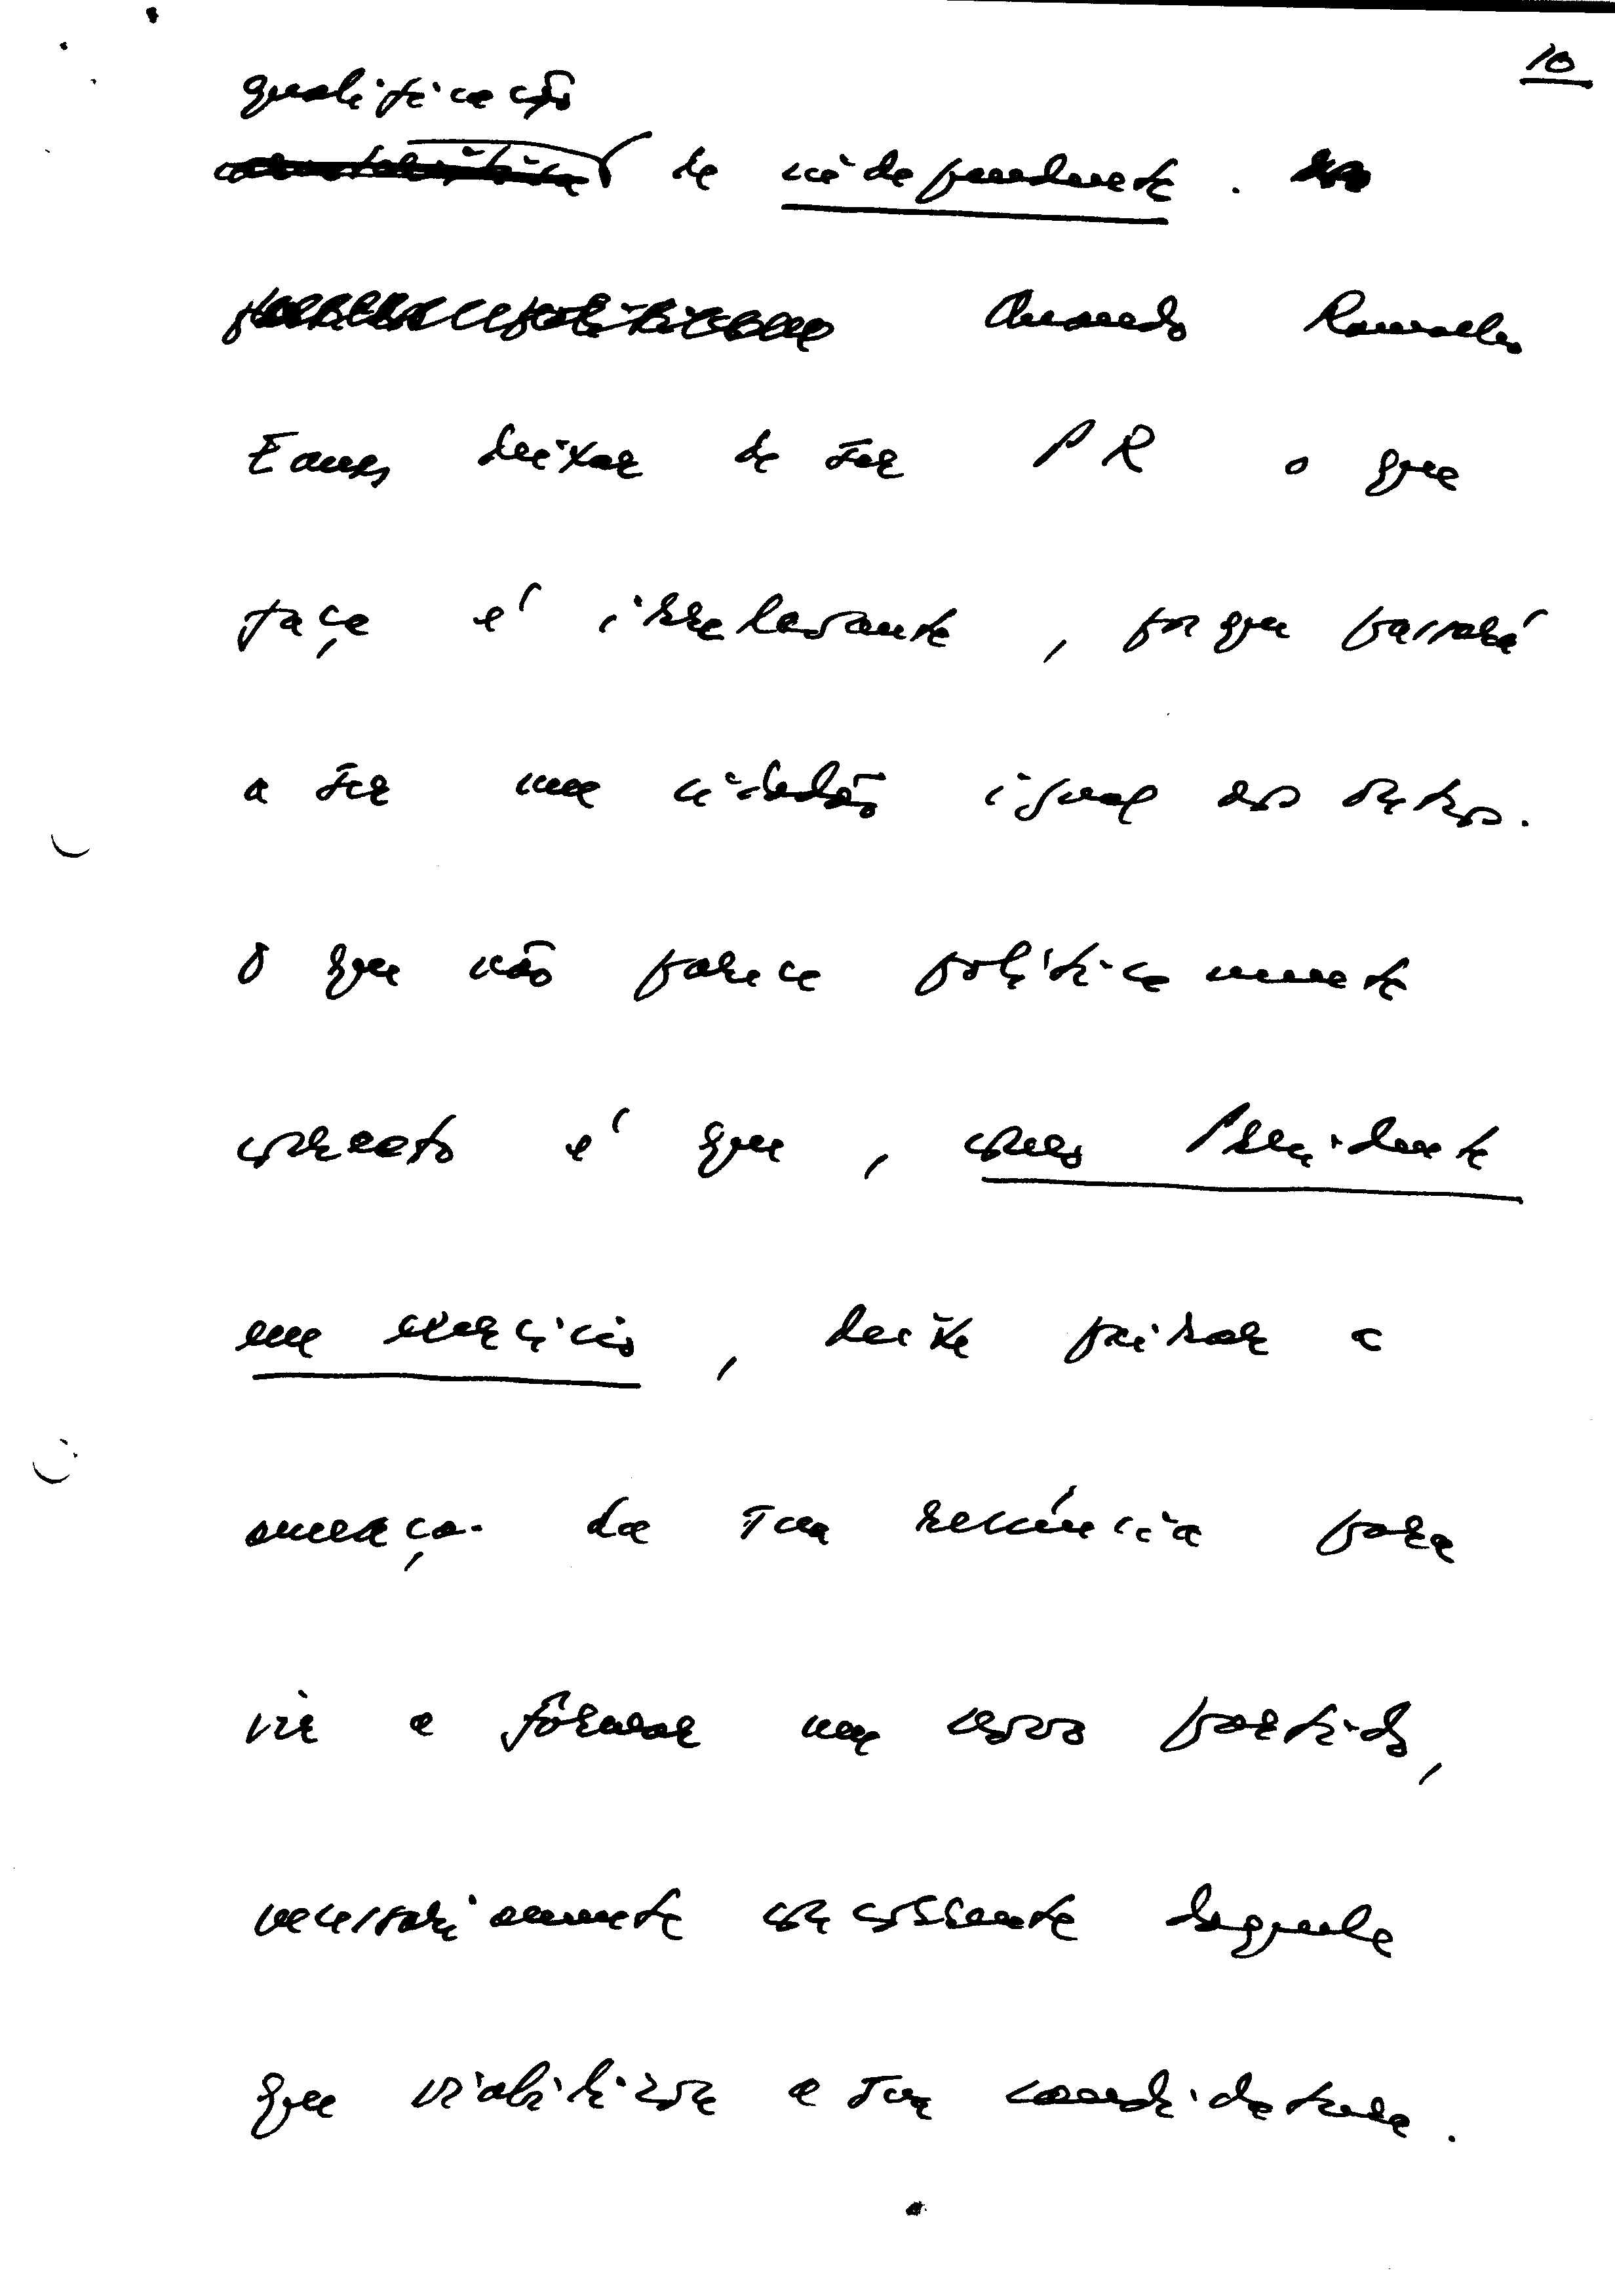 10
qualificação
de independente.
Quando Ramalho
Eanes deixar de ser PR o que
faça é irrelevante, porque passará
a ser um cidadão igual aos outros.
O que não parece politicamente
correcto é que, como Presidente
em exercício, deixe pairar a
ameaça da sua renúncia para
vir a formar um novo partido,
necessariamente concorrente daquele
que viabilizou a sua candidatura.